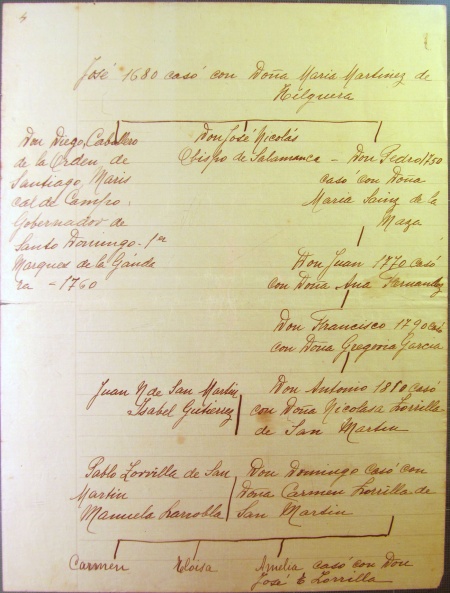 4
José 1680 casó con Doña Maria Martinez de
Hilguera
Don Diego, Caballero
de la Orden de
Santiago, Maris
cal de Campo,
Gobernador de
Santo Domingo. 1er
Marques de la Gánda
ra - 1760
Don José Nicolás
Obispo de Salamanca - Don Pedro 1750
casó con Doña
Maria Sainz de la
Maza
Don Juan 1770 casó
con Doña Ana Fernandez
Don Francisco 1790 casó
con Doña Gregoria Garcia
Juan N de San Martin
Isabel Gutierrez
Don Antonio 1810 casó
con Doña Nicolasa Zorrilla
de San Martin
Pablo Zorrilla de San
Martin
Manuela Larrobla
Don Domingo casó con
Doña Carmen Zorrilla de
San Martin
Carmen
Eloisa
Amelia casó con Don
José E Zorrilla